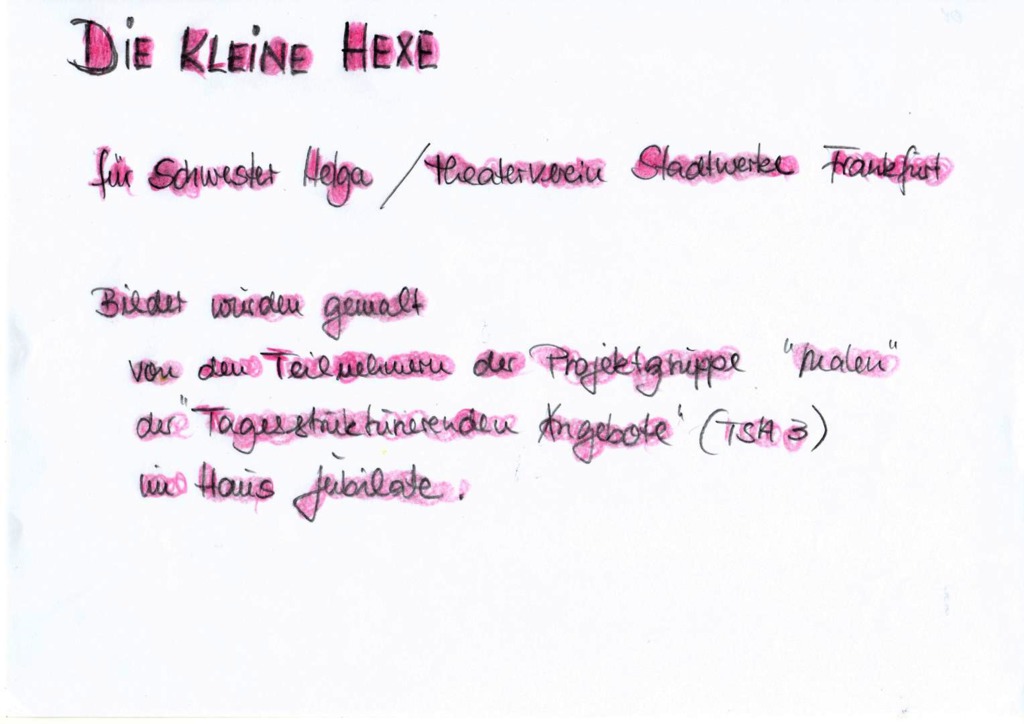 DIE KLEINE HEXE
für Schwester Helga / Theaterverein Stadtwerke Frankfurt
Bilder wurden gemalt
von den Teilnehmern der Projektgruppe "Malen"
der "Tagesstrukturierenden Angebote" (TSA 3)
im Haus Jubilate.